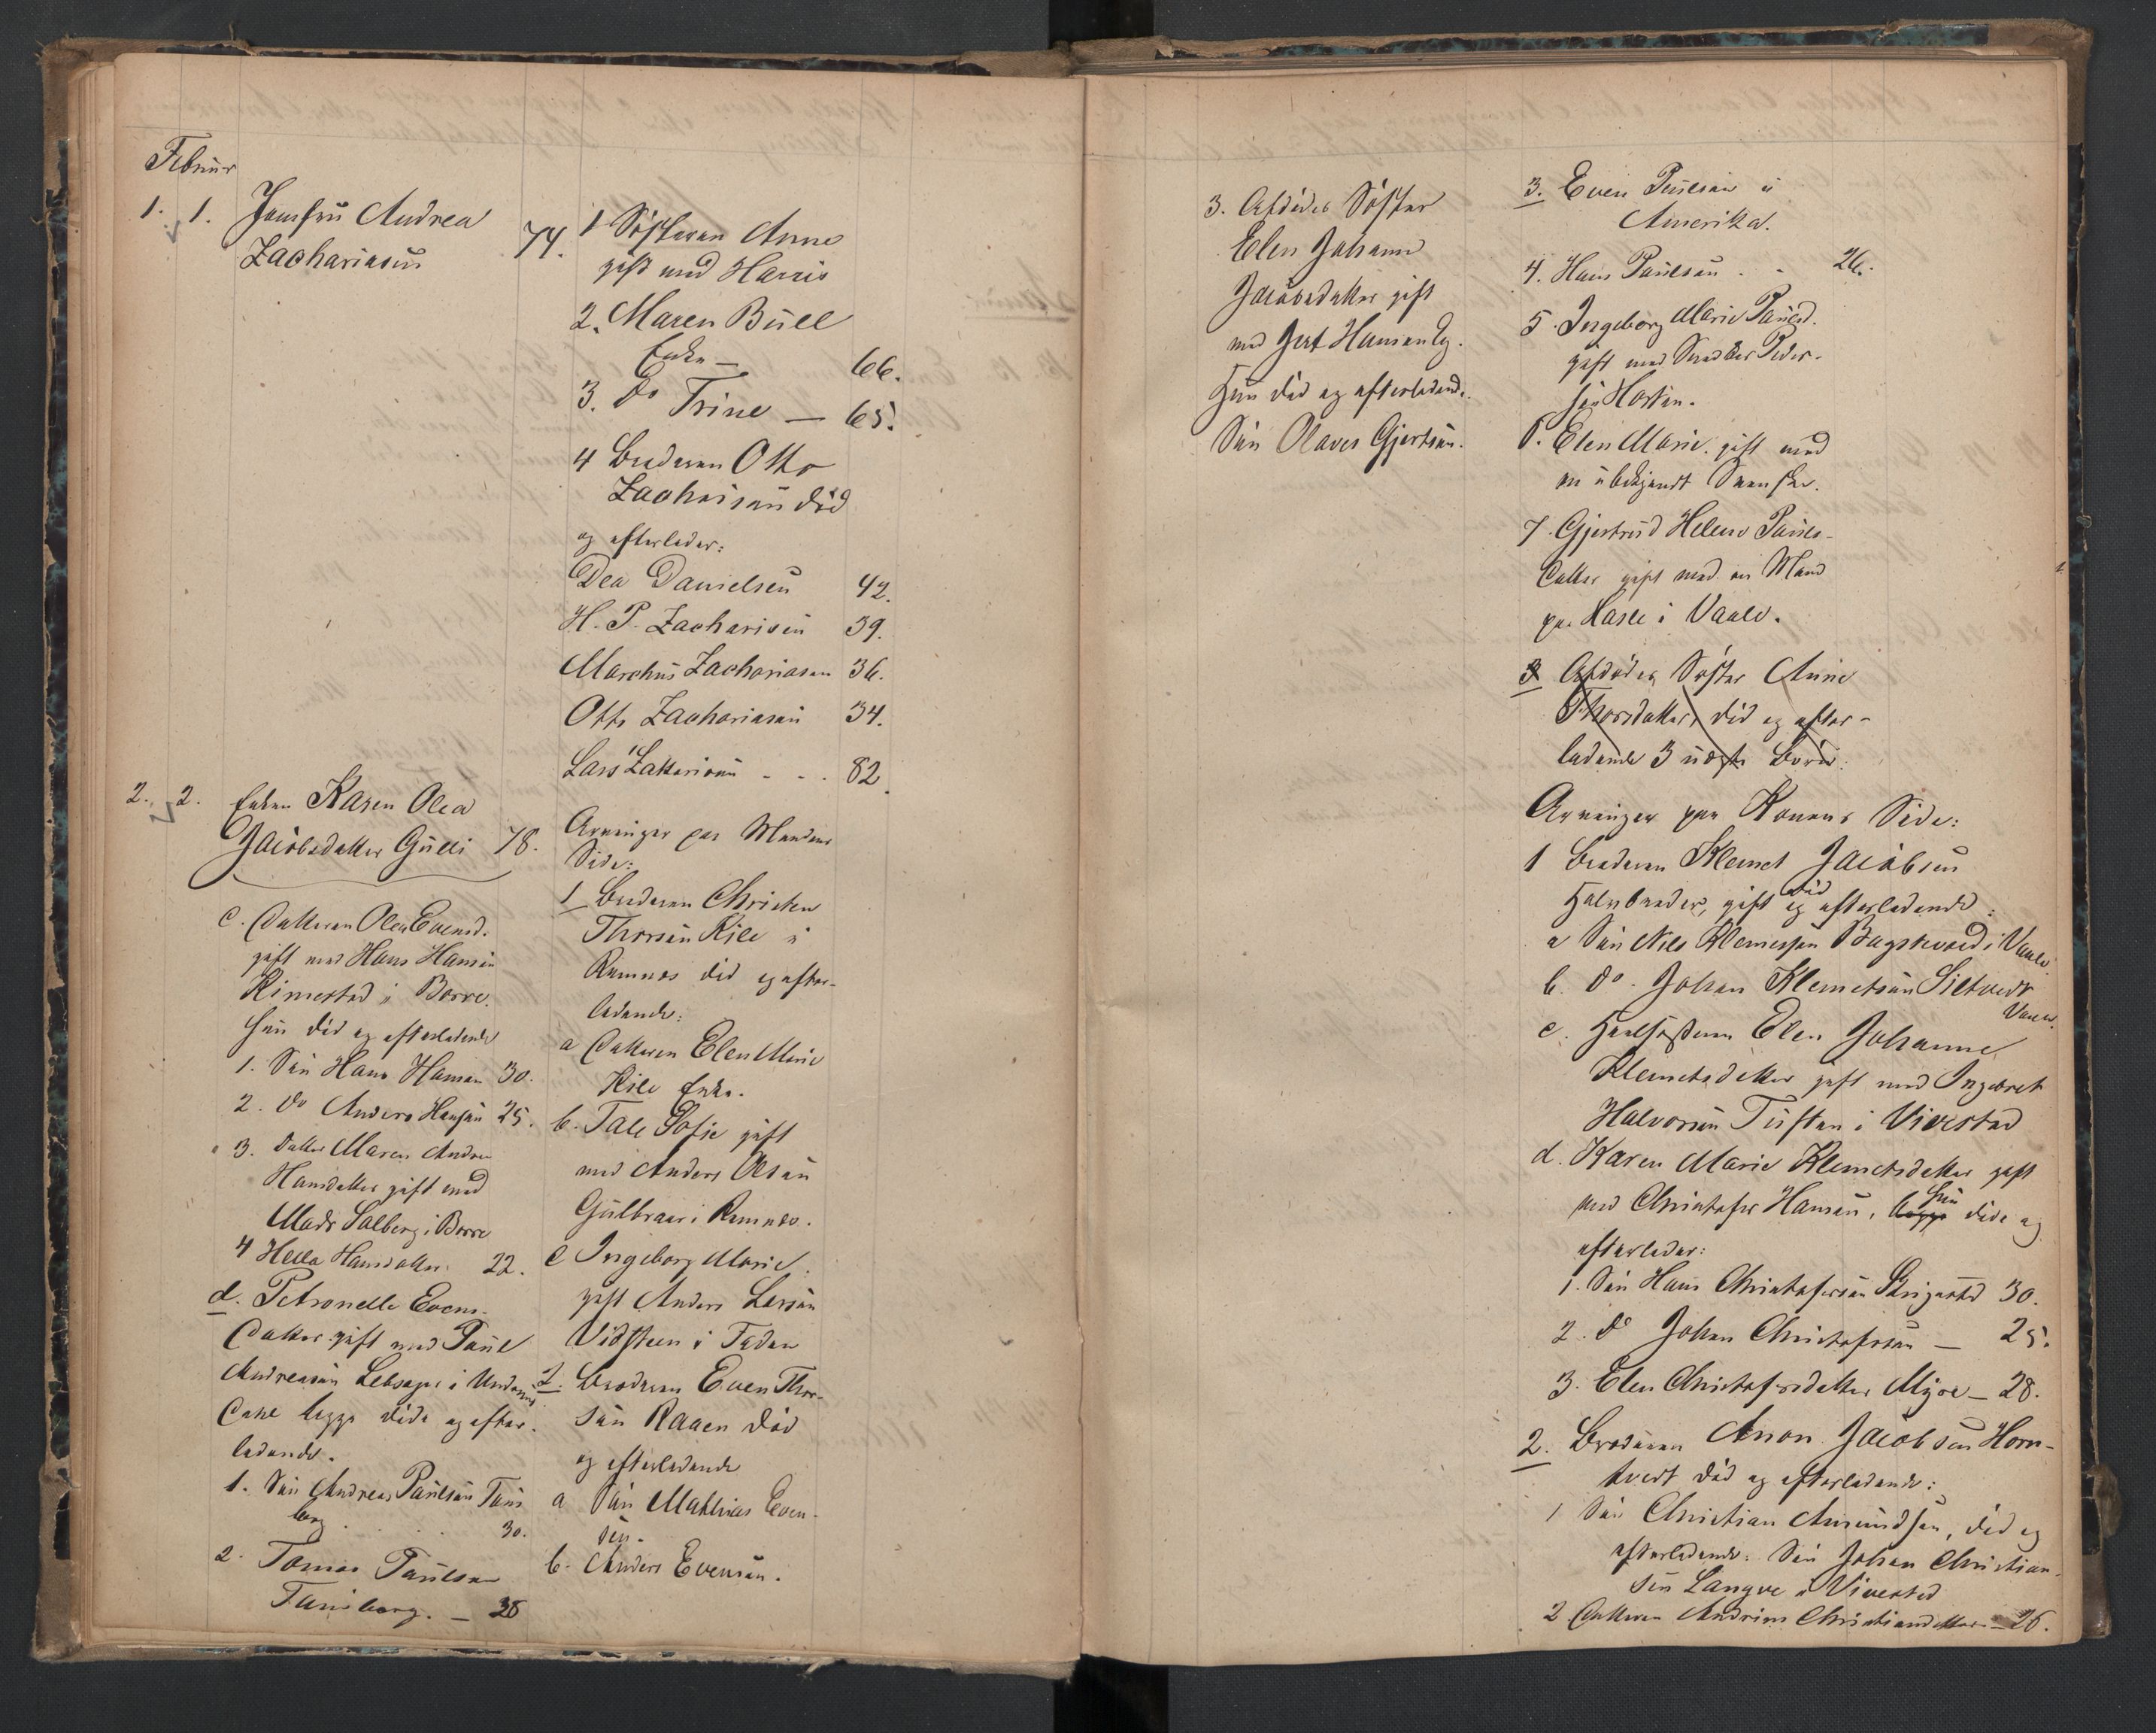 Februar
1. 1. Jomfru Andrea
Zachariasen 74.
1 Søsteren Anne
gift med Harris
2. Maren Bull
Enke — 66.
3. Do Trine — 65.
4 Broderen Otto
Zachrisen død
og efterlader:
Dea Danielsen 42.
H. P. Zacharisen 39.
Marchus Zachariasen 36.
Otto Zachariasen 34.
Lars Zakkarisen - - . 82.
2. 2. Enken Karen Olea
Jacobsdatter Gulli 78.
c. Datteren Olea Evensd.
gift med Hans Hansen
Kimestad i Borre.
Hun død og efterladende
1. Søn Hans Hansen 30.
2. Do Anders Hansen 25.
3. Datter Maren Andrea
Hansdatter gift med
Mads Solberg i Borre
4 Hella Hansdatter. 22.
d. Petronelle Evens-
Datter gift med Paul
Andreasen Lebsager i Undrums
Dahl begge døde og efter-
ladende.
1. Søn Andreas Paulsen Tøns
berg . . . 30.
2. Tomas Paulsen
Tønsberg. — 28
Arvinger paa Mandens
Side:
1 Broderen Christen
Thorsen Kile i
Ramnes død og efter-
ladende:
a Datteren Elen Marie
Kile Enke.
b. Tale Sofie gift
med Anders Olsen
Gulbraar i Ramnes.
c Ingeborg Marie
gift Anders Larsen
Vidsteen i
2. Broderen Even Thor-
sen Raaen død
og efterladende
a Søn Mathias Even-
sen.
b. Anders Evensen.
3. Afdødes Søster
Elen Johanne
Jacobsdatter gift
med Gert Hansen Eg.
Hun død og efterladende.
Søn Olaves Gjertsen.
3. Even Paulsen i
Amerika.
4. Hans Paulsen . - 26.
5. Ingeborg Marie Paulsd.
gift med Snedker Peder-
sen Horten.
6. Elen Marie. gift med
en ubekjendt Svenske.
7. Gjertrud Helene Pauls-
Datter gift med en Mand
paa Hasle i Vaale.
3 Afdødes Søster Anne
Thorsdatter, død og efter-
ladende 3 Børn.
Arvinger paa Konens Side:
1 Broderen Klemet Jacobsen
Halvbroder, gift død og efterladende:
a Søn Nils Klemetsen Bagskvold i Vaale
b. Do. Johan Klemetsen Siltvedt
Vaale.
c. Halvsøsteren Elen Johanne
Klemetsdatter gift med Ingebret
Halvorsen Tuften i Vivestad
d. Karen Marie Klemetsdatter gift
med Christofer Hansen, begge Hun døde og
efterlader:
1. Søn Hans Christofersen 30.
2. Do Johan Christofersen — 25.
3. Elen Christofersdatter Myre — 28.
2. Broderen Amon Jacobsen Horn-
tvedt død og efterladende:
1 Søn Christian Amundsen, død og
efterladende: Søn Johan Christian-
sen Langve i Vivestad
2 Datteren Andrine Christiansdatter — 26.